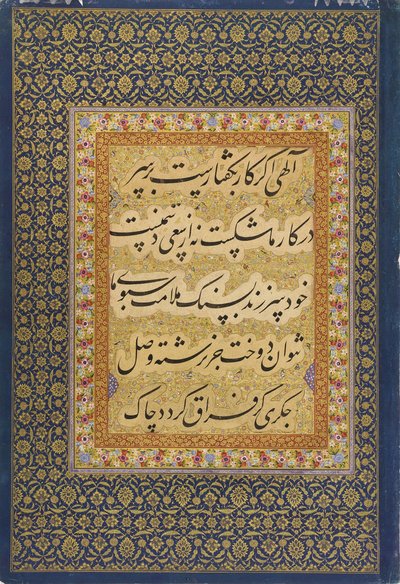 آلهی اگر کار بگفتارست بر سر
در کار ما شکست نه از سعی دشمنست
خود میزند بسنگ ملامت سبوی ما
نتوان دوخت جز برشته وصل
جگری کز فراق گردد چاک